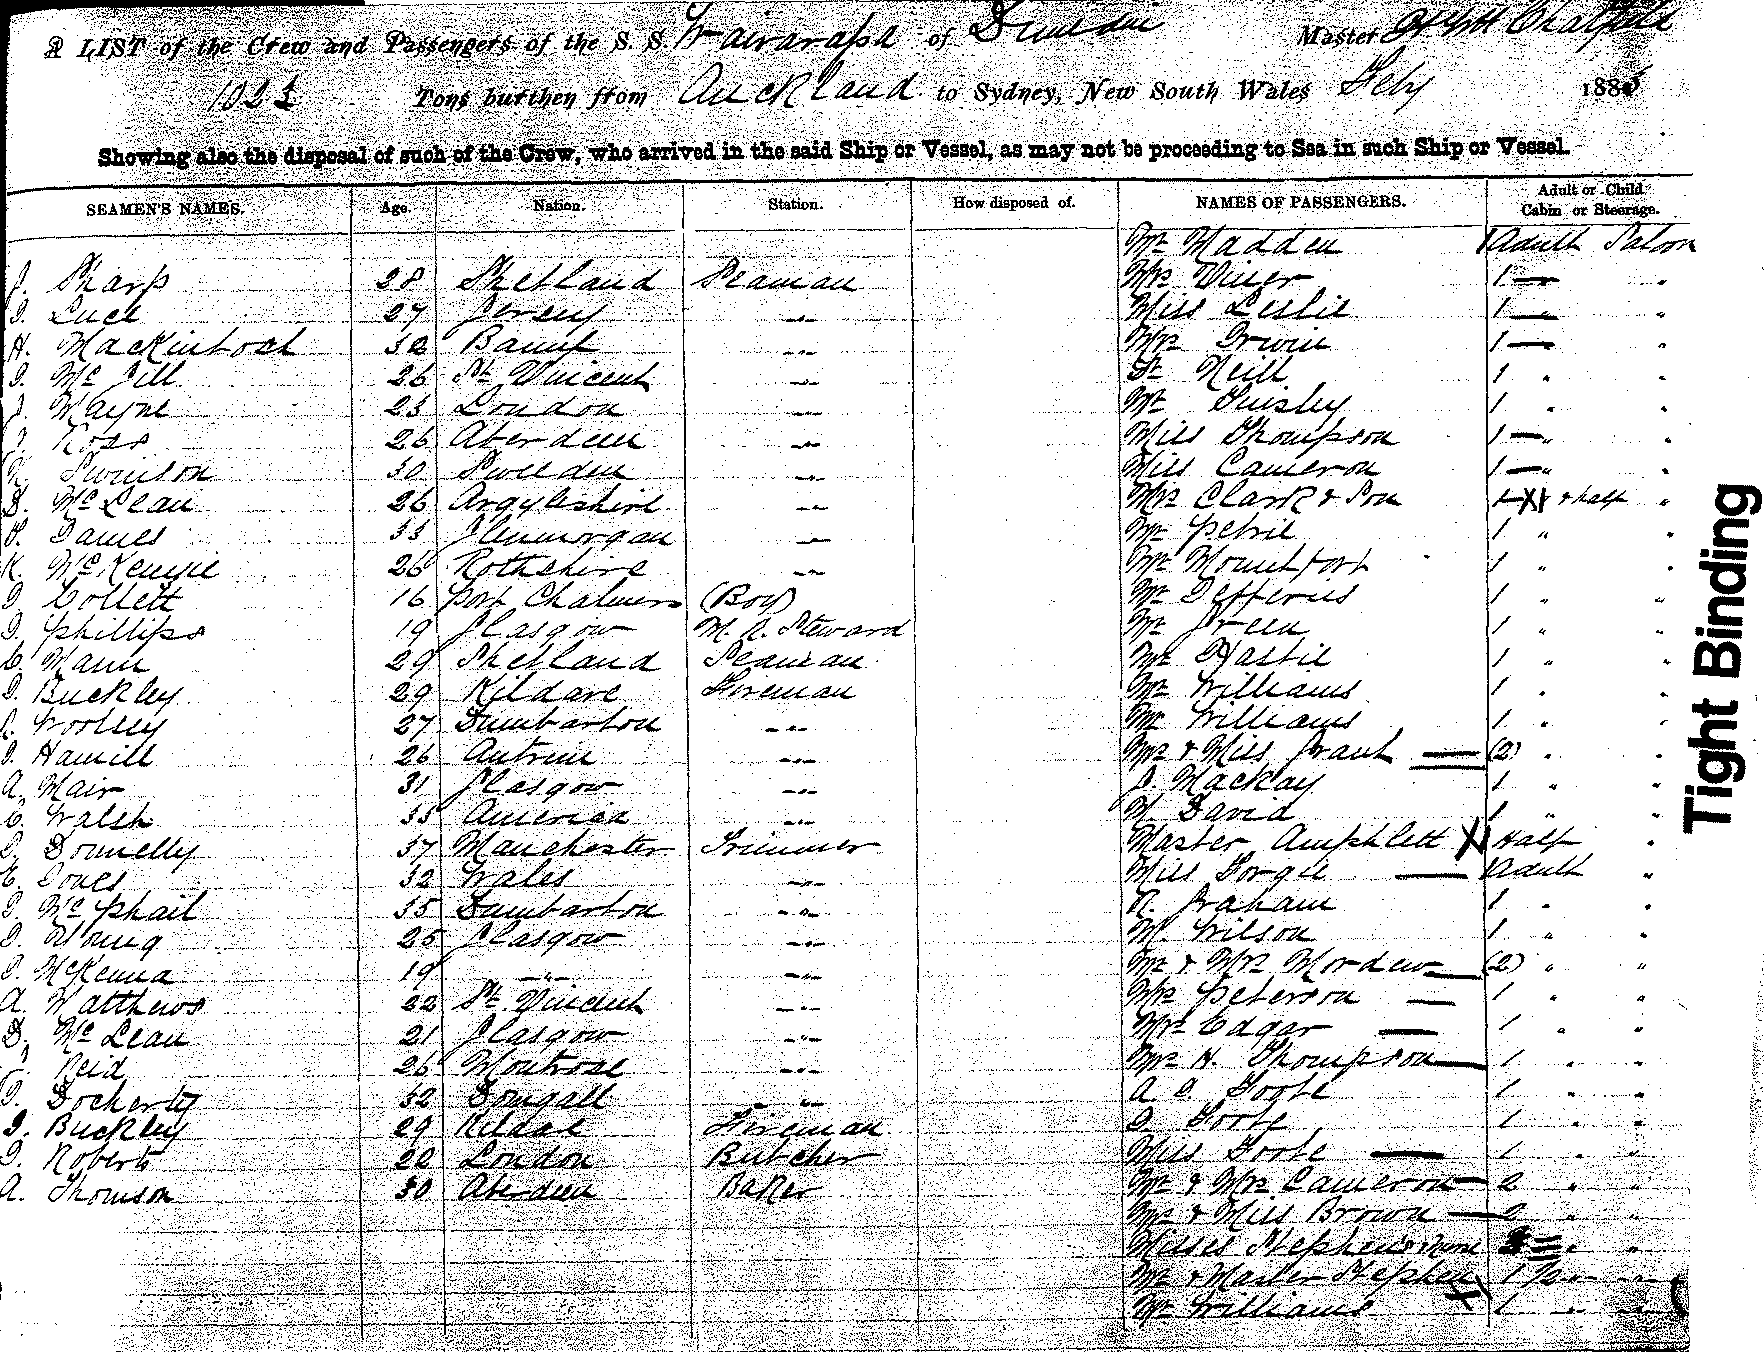 A LIST of the Crew and Passengers of the S. S. Wairarapa of Dunedin Master Chatfield
1023 Tons burthen from Auckland to Sydney, New South Wales Feby 188
Showing also the disposal of such of the Crew, who arrived in the said Ship or Vessel, as may not be proceeding to Sea in such Ship or Vessel.
SEAMEN'S NAMES. Age. Nation. Station. How disposed of. NAMES OF PASSENGERS. Adult or Child Cabin or Steerage.
Mr Madden 1 Adult Saloon
J. Sharp 28 Shetland Seaman Mrs Viner 1 — "
Luce 27 Jersey -"- Miss Leslie 1 — "
H. Mackintosh 32 Banff -"- Mrs Irwin 1 — "
Mc Gill 26 St Vincent -"- Dr Neill 1 " "
J. Mayne 23 London -"- Mr Tinsley 1 " "
Ross 26 Aberdeen -"- Miss Thompson 1 — " "
Swinson 30 Sweeden -"- Miss Cameron 1 — " "
D. Mc Lean 26 Argyleshire -"- Mrs Clark & Son 1 X 1 & half "
James 33 Glenmorgan -"- Mr Petrie 1 " "
K. McKenzie 26 Rothshire -"- Mr Mountfort 1 " "
Collett 16 Port Chalmers (Boy) Mr Defferies 1 " "
Phillips 19 Glasgow M. R. Steward Mr Green 1 " "
C. Mann 29 Shetland Seaman Mr Hastie 1 " "
Buckley 29 Kildare Fireman Mr Williams 1 " "
Woolley 27 Dumbarton -"- Mr Williams 1 " "
Hamill 26 Antrim -"- Mrs & Miss Grant — (2) " "
A. Mair 31 Glasgow -"- Mackay 1 " "
C. Walsh 35 America -"- M. David 1 " "
Donnelly 37 Manchester Trimmer Master Amphlett X 1 Half "
Jones 32 Wales -"- Miss Forgie — 1 Adult "
Mc Phail 35 Dumbarton -"- R. Graham 1 " "
Young 25 Glasgow -"- W. Wilson 1 " "
McKenna 19 -"- -"- Mr & Mrs Mordew — (2) " "
A. Matthews 22 St Vincent -"- Mrs Peterson — 1 " "
D. Mc Lean 21 Glasgow -"- Mrs Edgar — 1 " "
Reid 26 Montrose -"- Mrs H. Thompson — 1 " "
Docherty 32 Dongall -"- A Foote 1 " "
Buckley 29 Kildae Fireman Foote 1 " "
Roberts 22 London Butcher Miss Foote — 1 " "
A. Thomson 30 Aberdeen Baker Mr & Mrs Cameron — 2 " "
Mrs & Miss Brown — 2 " "
Misses Stephen & Nurse " "
Mr & Master Stephen X 1 1/2 " "
Mr Williams 1 " "
Tight Binding